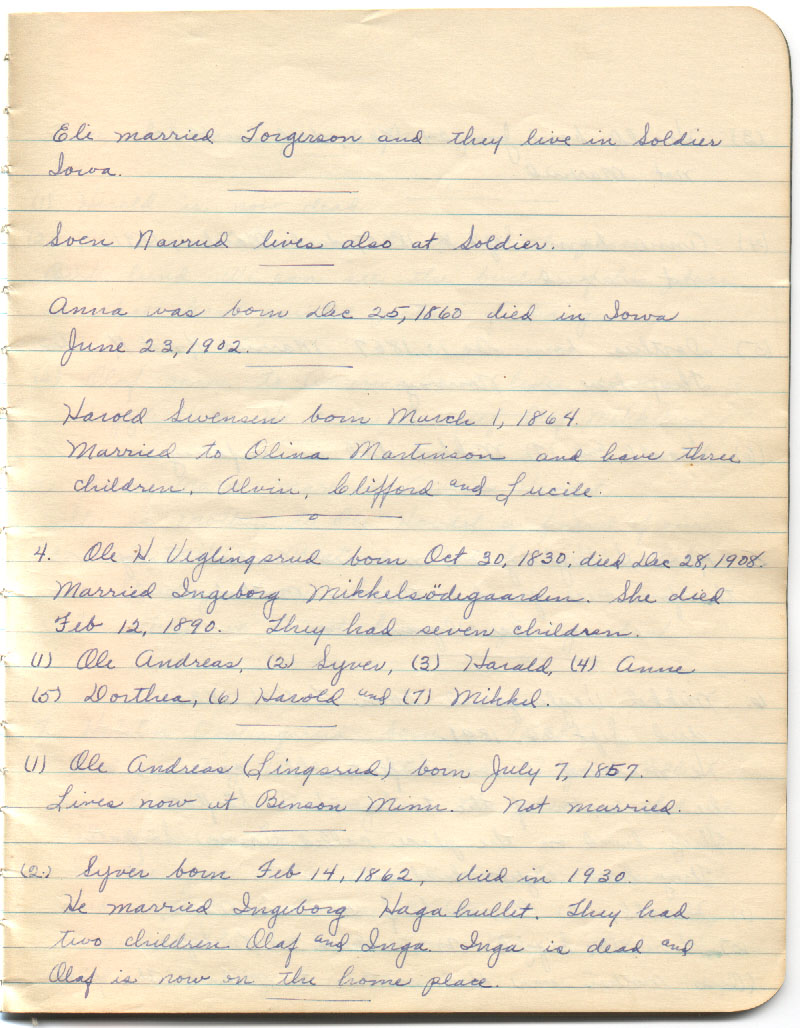 Eli married Torgerson and they live in Soldier
Iowa.
Sven Navrud lives also at Soldier.
Anna was born Dec 25, 1860 died in Iowa
June 23, 1902.
Harold Swensen born March 1, 1864.
Married to Olina Martinson and have three
children, Alvin, Clifford and Lucile.
4. Ole H. Veglingsrud born Oct 30, 1830, died Dec 28, 1908.
Married Ingeborg Mikkelsödegaarden. She died
Feb 12, 1890. They had seven children.
(1) Ole Andreas, (2) Syver, (3) Harald, (4) Anne
(5) Dorthea, (6) Harold and (7) Mikkel.
(1) Ole Andreas (Lingsrud) born July 7, 1857.
Lives now at Benson Minn. Not married.
(2.) Syver born Feb 14, 1862, died in 1930.
He married Ingeborg Hagahullet. They had
two children Olaf and Inga. Inga is dead and
Olaf is now on the home place.